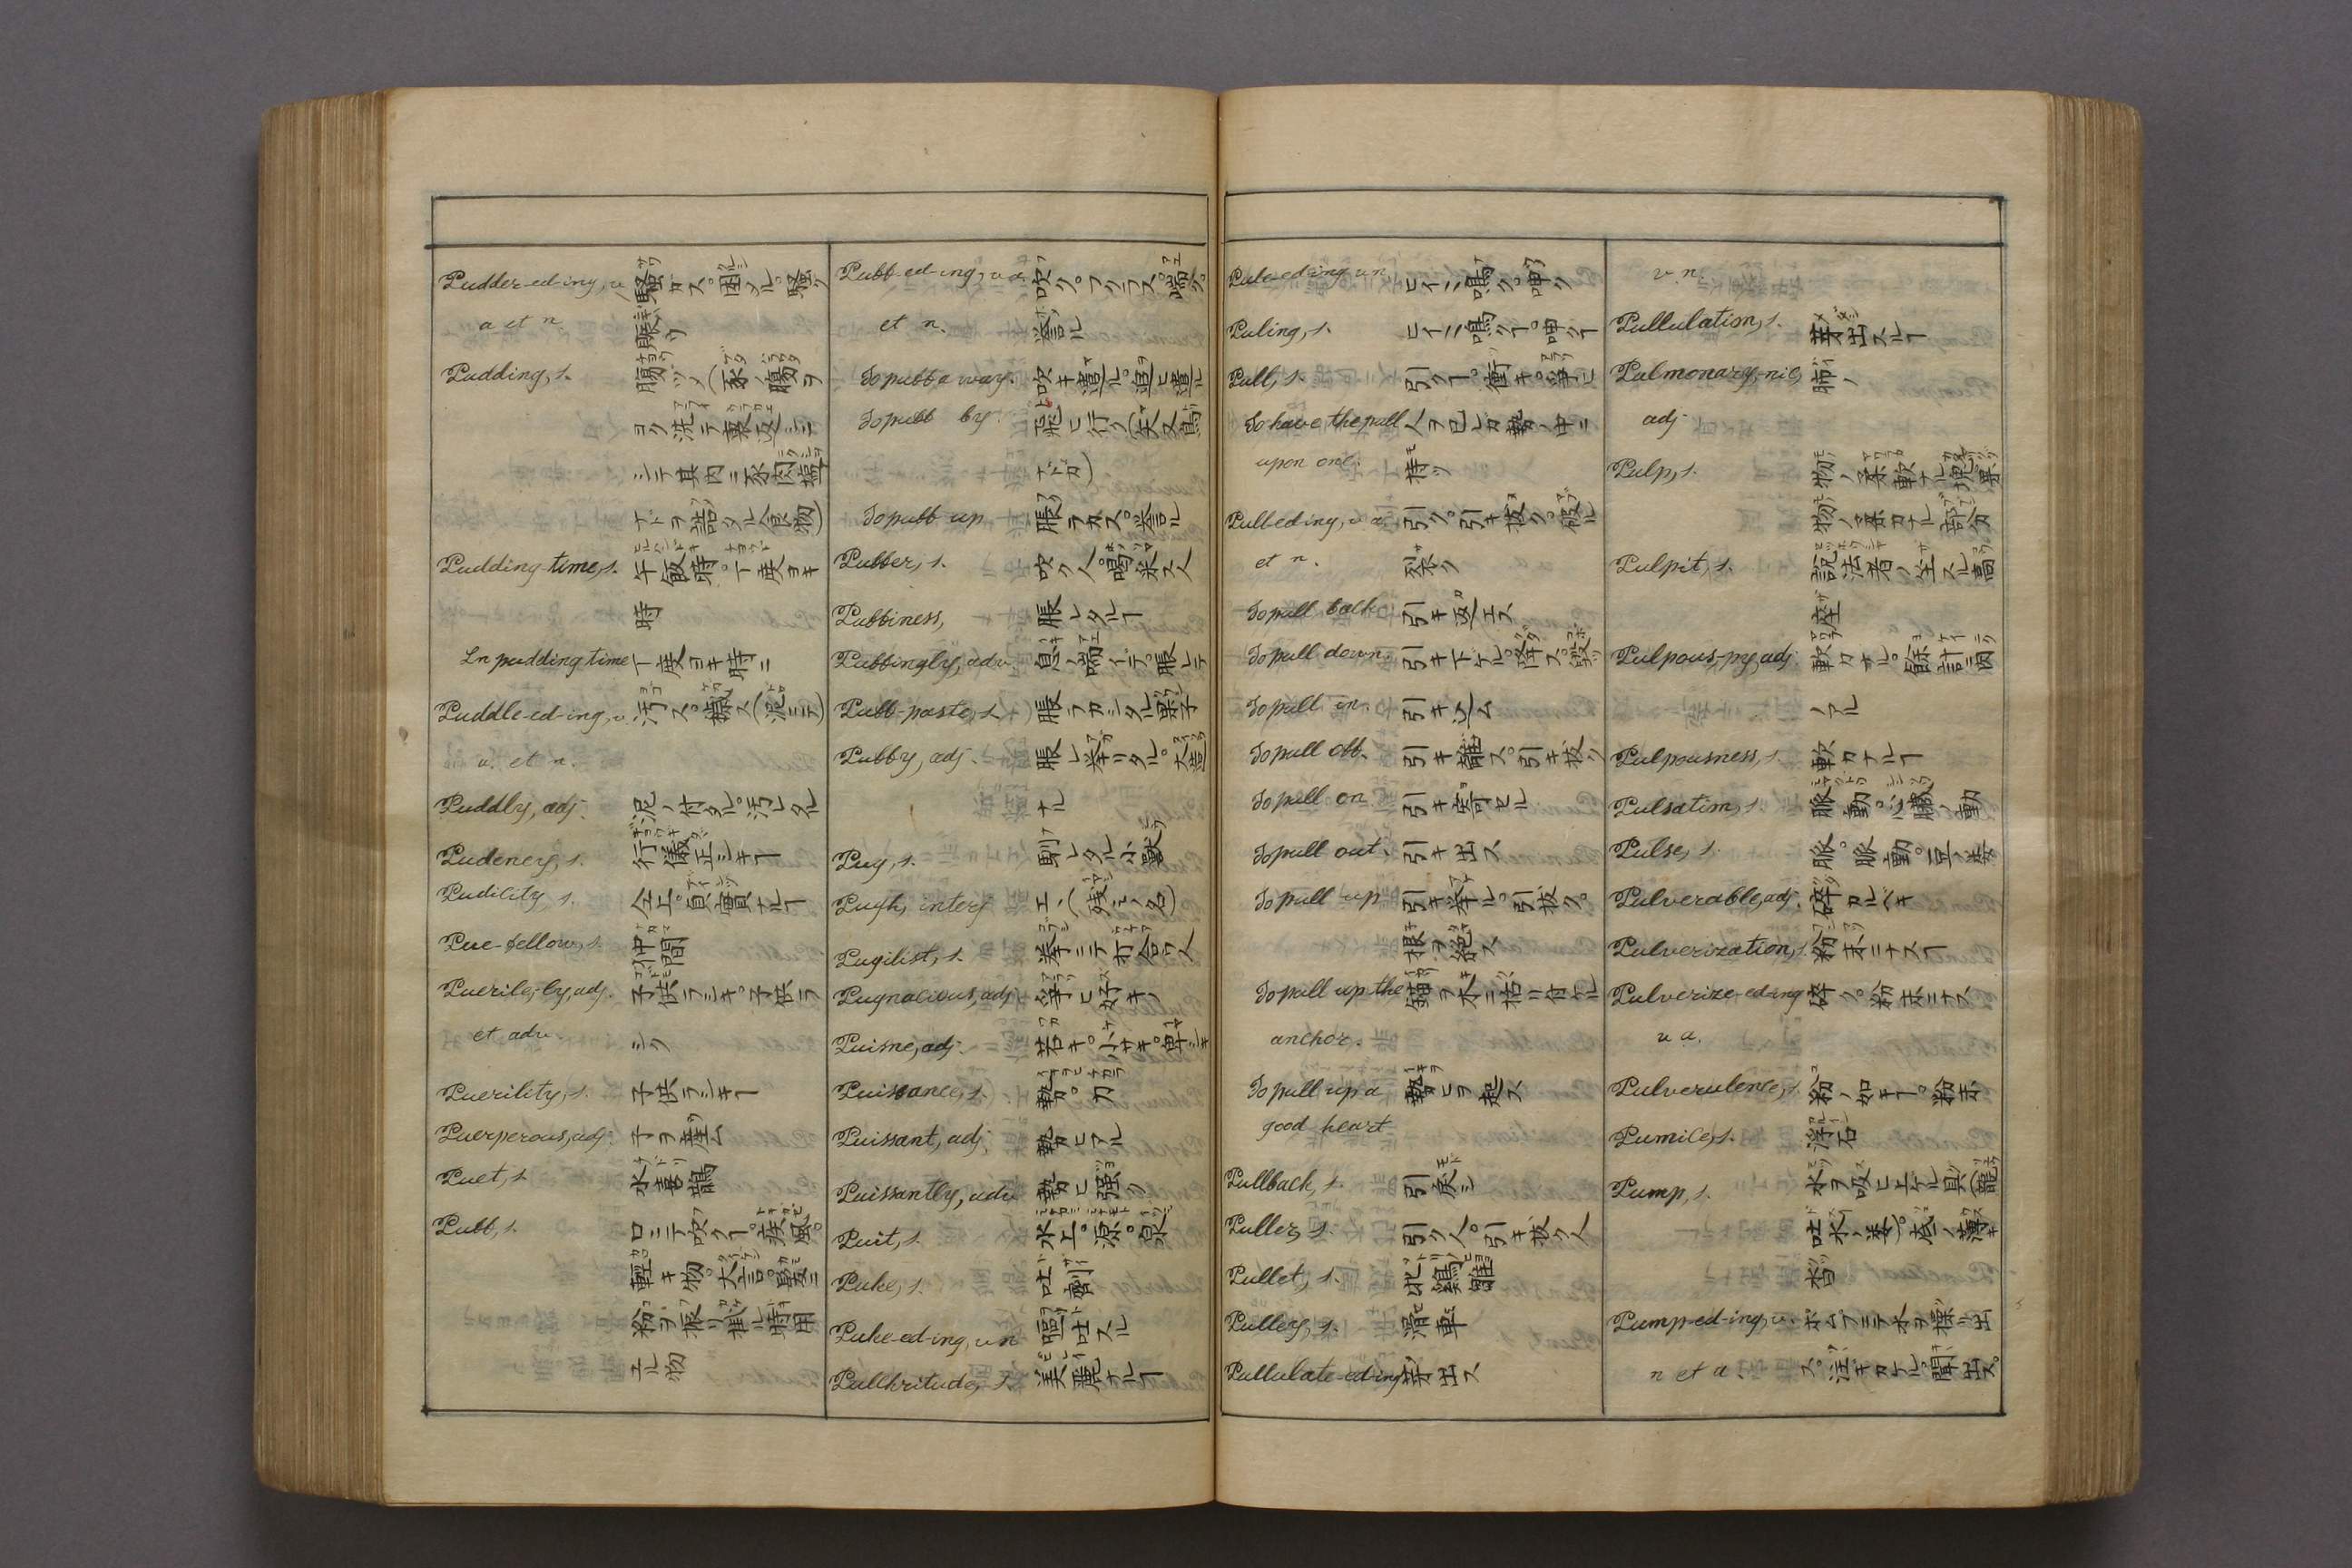 Pudder-ed-ing, v. 騒カス。困ル。騒ク
a et n. 賑ク
Pudding, s. 腸ツメ(豕ノ腸ヲ
ヨク洗テ裏返シニ
シテ其内ニ豕肉
ナドヲ詰タル食物)
Pudding-time, s. 午飯時。丁度ヨキ
時
In pudding time 丁度ヨキ時ニ
Puddle-ed-ing, v. 汚ス。穢ス(泥ニテ)
a. et n.
Puddly, adj. 泥ノ付タル。汚レタル
Pudency, s. 行儀正シキヿ
Pudicity, s. 仝上。貞實ナルヿ
Pue-fellow, s. 仲間
Puerile,-ly, adj. 子供ラシキ。子供ラ
et adv. シク
Puerility, s. 子供ラシキヿ
Puerperous, adj. 子ヲ産ム
Puet, s. 水喜鵲
Puff, s. 口ニテ吹クヿ。疾風。
輕キ物。大言。髪ニ
粉ヲ振リ掛ル時用
ユル物
Puff-ed-ing, v a 吹ク。フクラス。喘ク。
et n. 誉ル
To puff away. 吹キ遣ル。追ヒ遣ル
To puff by. 飛ヒ行ク(矢又鳥
ナドガ)
To puff up 脹ラカス。誉ル
Puffer, s. 吹ク人。喝采スル人
Puffiness, 脹レタルヿ
Puffingly, adv. 息ノ喘イデ。脹レテ
Puff-paste, s. 脹ラカシタル菓子
Puffy, adj. 脹レ挙リタル。大造
ナル
Pug, s. 馴レタル小獣
Pugh, interj エヽ(残ミノ名)
Pugilist, s. 拳ニテ打合フ人
Pugnacious, adj. 争ヒ好キノ
Puisne, adj. 若キ。小サキ。卑シキ
Puissance, s. 勢。力
Puissant, adj. 勢ヒアル
Puissantly, adv 勢ヒ強ク
Puit, s. 水上。源。泉
Puke, s. 吐劑
Puke-ed-ing, v n 嘔吐スル
Pulchritude, s. 美麗ナルヿ
Pule-ed-ing v n. ヒイヽ鳴ク。呻ク
Puling, s. ヒイヽ鳴クヿ。呻クヿ
Pull, s. 引クヿ。衝キ。争ヒ
To have the pull 人ヲ己レカ勢ノ中ニ
upon one. 持ツ
Pull-ed-ing, v a 引ク。引キ抜ク。破ル
et n. 裂ク
To pull back 引キ返エス
To pull down. 引キ下ケル。降ス。毀ツ
To pull in. 引キ込ム
To pull off. 引キ離ス。引キ抜ク
To pull on 引キ寄セル
To pull out. 引キ出ス
To pull up 引キ挙ル。引抜ク。
根ヲ絶ス
To pull up the 錨ヲ木ニ括リ付ル
anchor.
To pull up a 勢ヒヲ起ス
good heart
Pullback, s. 引戻シ
Puller, s. 引ク人。引キ抜ク人
Pullet, s. 牝鷄雛
Pulley, s. 滑車
Pullulate-ed-ing 芽出ス
v n.
Pullulation, s. 芽出スルヿ
Pulmonary,-nic, 肺ノ
adj
Pulp, s. 物ノ柔軟ナル塊。果
物ノ柔カナル部分
Pulpit, s. 説法者ノ坐スル高
座
Pulpous,-py, adj. 軟カナル。餘計ニ肉
ノアル
Pulpousness, s. 軟カナルヿ
Pulsation, s. 脈動。心臓ノ動
Pulse, s. 脈。脈動。豆ノ類
Pulverable, adj. 碎カルベキ
Pulverization, s. 粉末ニナスヿ
Pulverize-ed-ing 碎ク。粉末ニナス
v a.
Pulverulence, s. 粉ノ如キヿ。粉末
Pumice, s. 浮石
Pump, s. 水ヲ吸ヒ上ケル具(龍
吐水ノ類)。底ノ薄キ
沓
Pump-ed-ing, v. ポムプニテ水ヲ操リ出
n et a. ス。注キカケル。聞出ス。